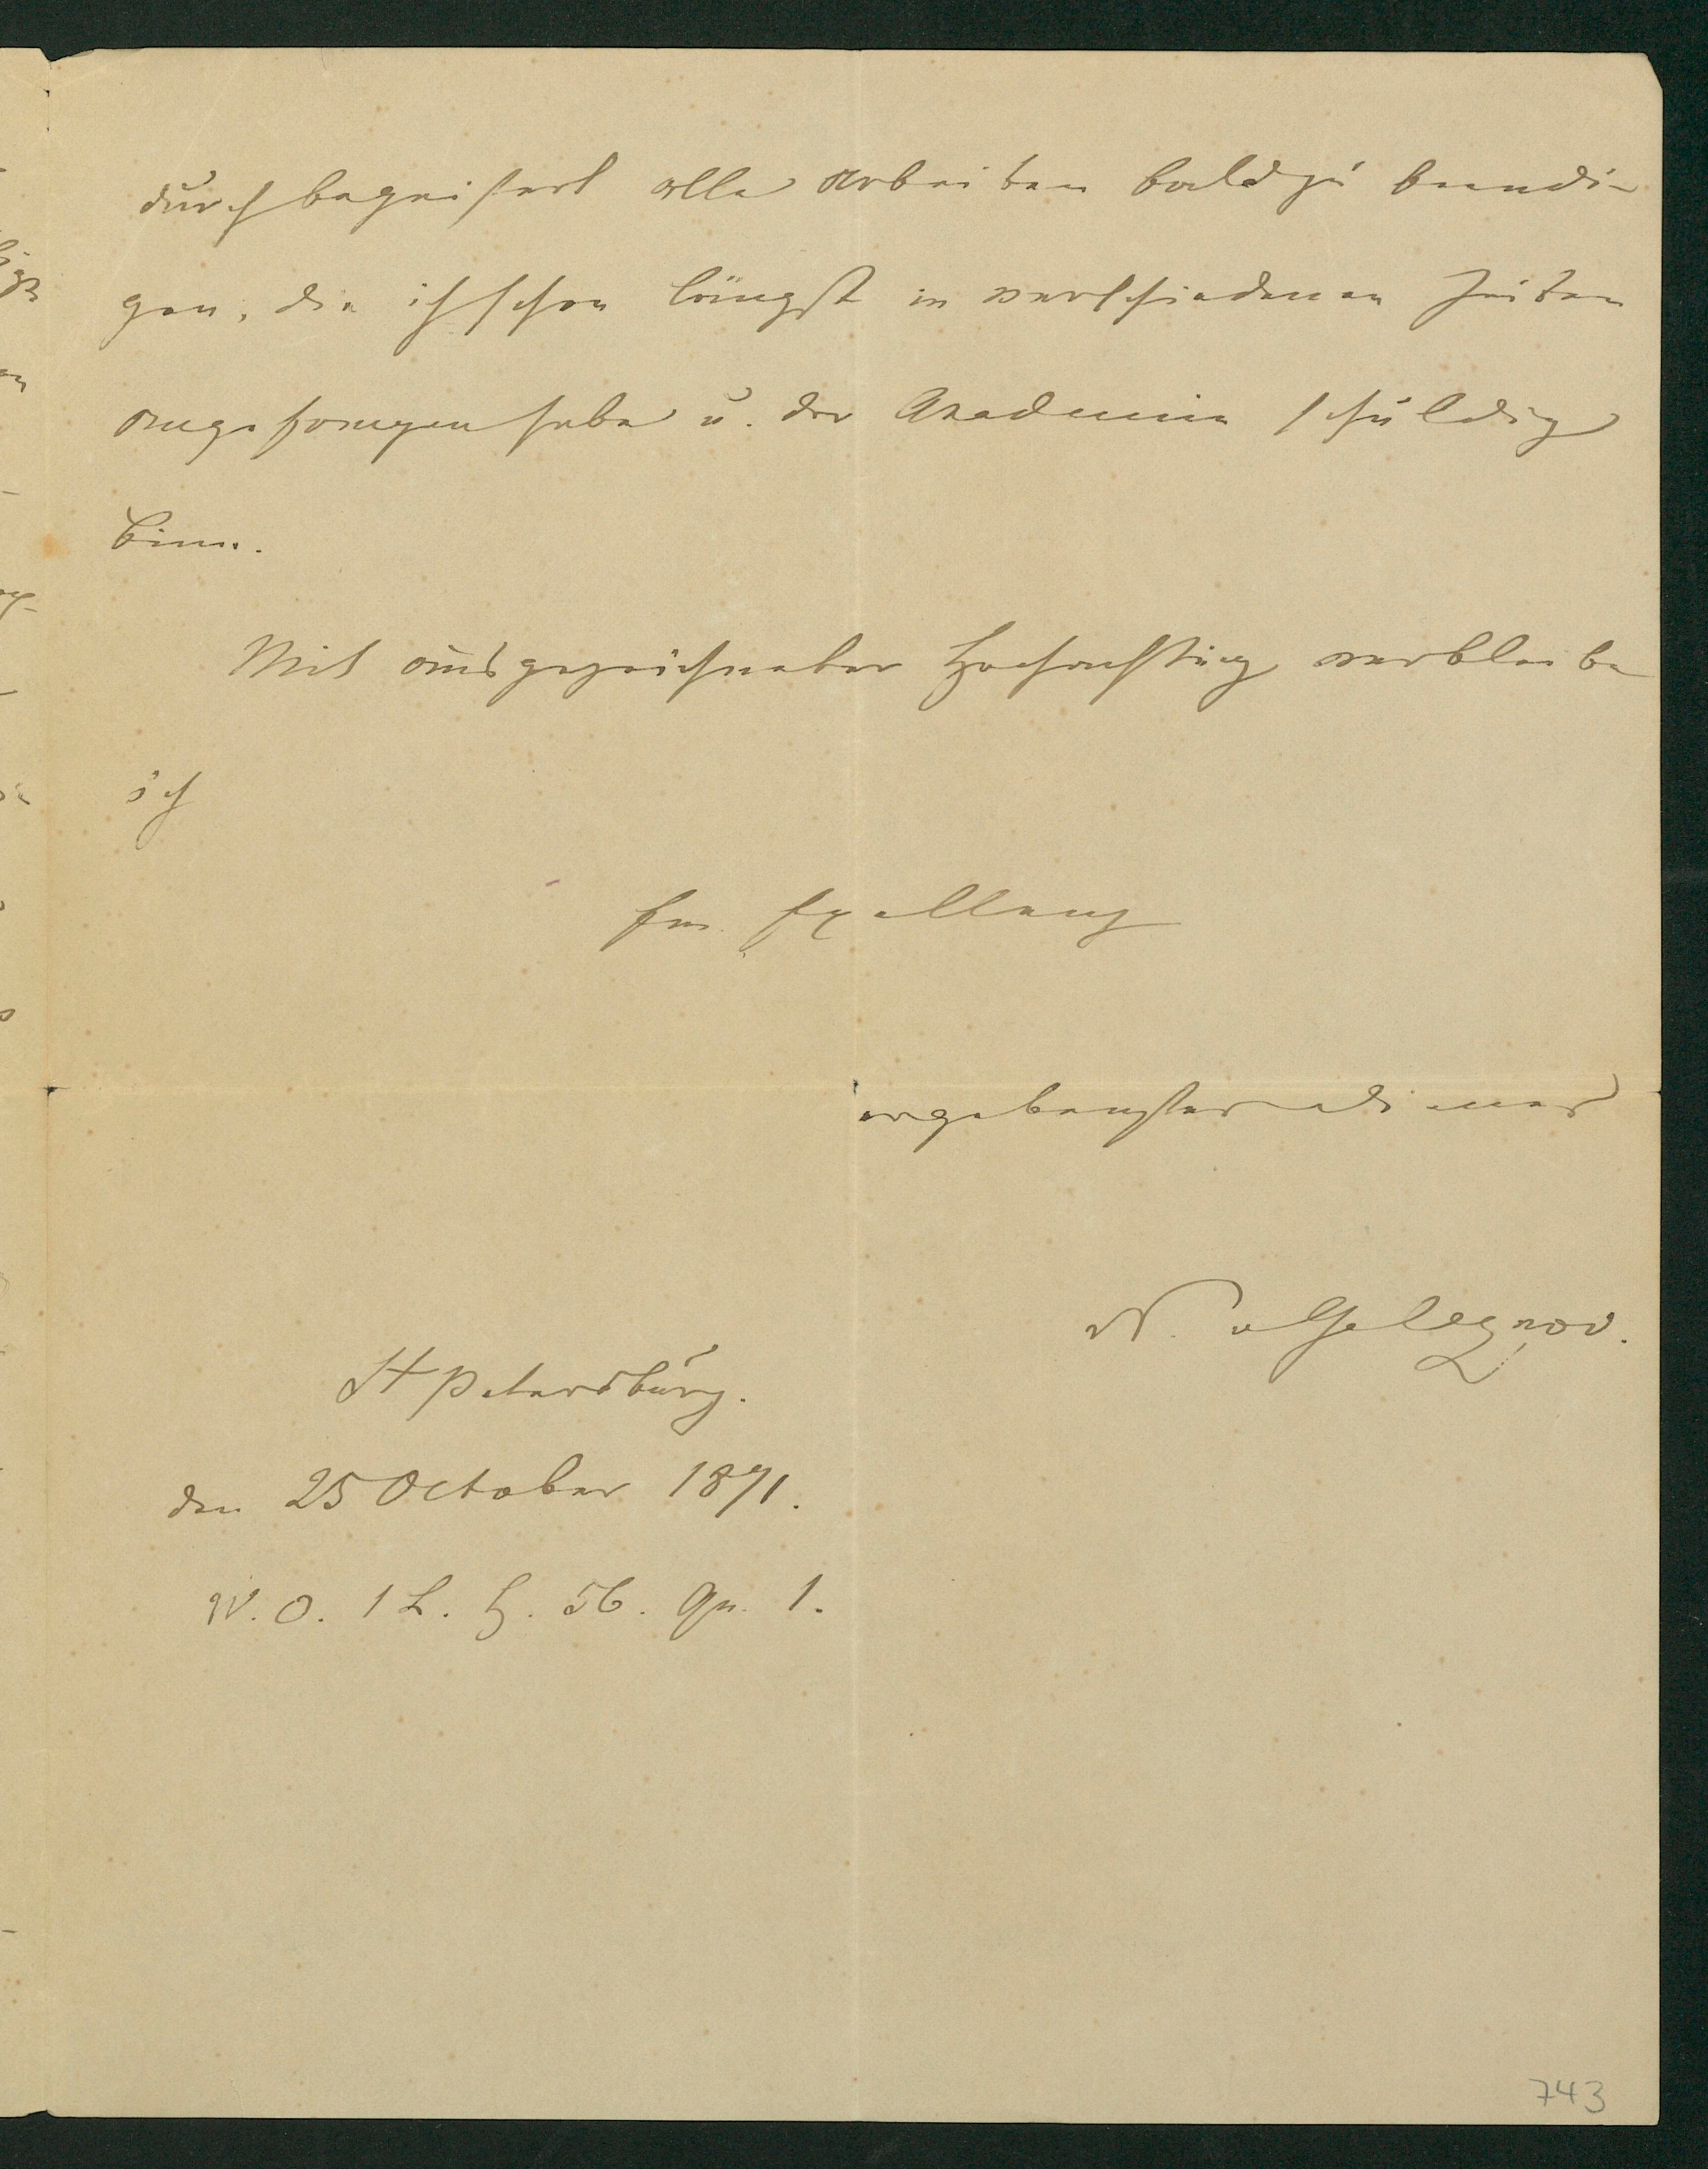 durch begeistert alle Arbeiten bald zu beendi-
gen, die ich schon längst in verschiedenen Zeiten
angefangen habe u. der Academie schuldig
binn.
Mit ausgezeichneter Hochachtung verbleibe
ich
Ew. Exellenz
ergebenster Diener
N.
St Petersburg.
den 25 October 1871.
W. O. 1 L. H. 56. Qu. 1.
743